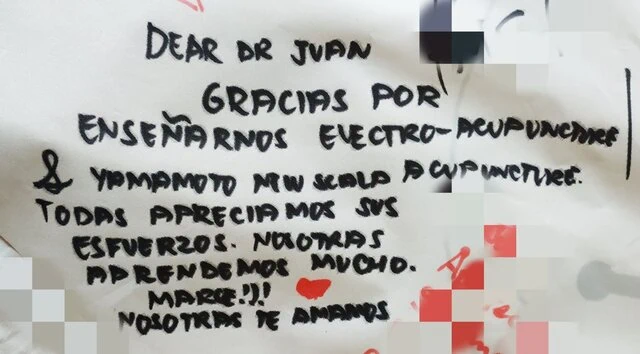 DEAR DR JUAN
GRACIAS POR
ENSEÑARNOS ELECTRO-ACUPUNCTURE
& YAMAMOTO NEW SCALA ACUPUNCTURE.
TODAS APRECIAMOS SUS
ESFUERZOS. NOSOTRAS
APRENDEMOS MUCHO.
MARCE!!!
NOSOTRAS TE AMAMOS